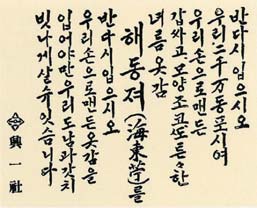 반다시입으시오
우리二千万동포시여
우리손으로맨든
갑싸고모양조코또튼々한
녀름옷감
해동저(海東苧)를
반다시입으시오
우리손으로맨든옷감을
입어야만우리도남과갓치
빗나게살수잇슴니다
興一社